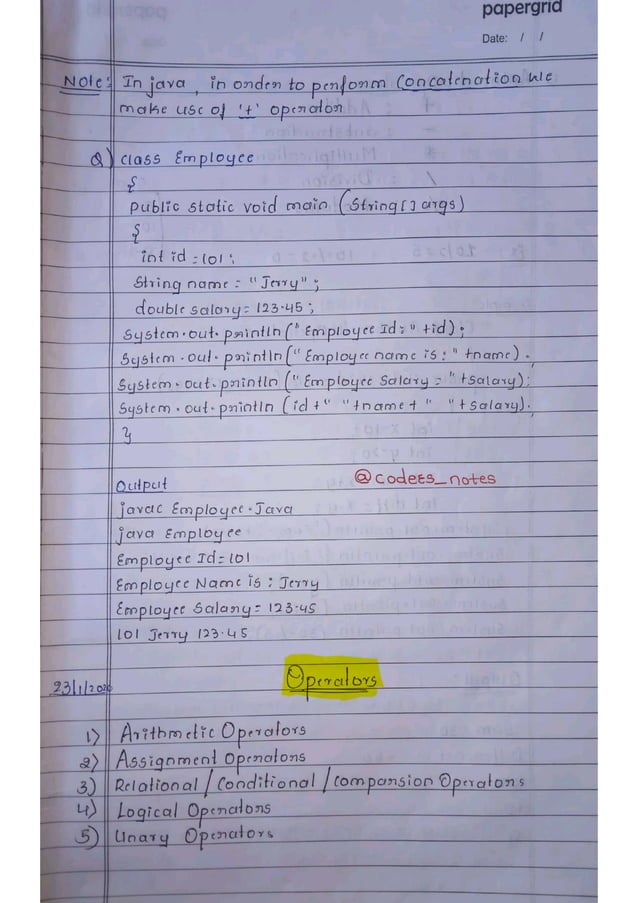 papergrid
Date: / /
Note: In java, in order to perform Concatenation we
make use of '+' operator
Q) class Employee
{
Public static void main (String[] args)
{
int id = 101;
String name = "Jerry";
double salary = 123.45;
System.out.println ("Employee Id: " +id);
System.out.println ("Employee name is: " +name).
System.out.println ("Employee Salary = " +Salary);
System.out.println (id +" "+name+ " "+salary).
}
Output
@codees_notes
javac Employee.Java
java Employee
Employee Id= 101
Employee Name is : Jerry
Employee Salary= 123.45
101 Jerry 123.45
23/1/2020
Operators
1) Arithmetic Operators
2) Assignment Operators
3) Relational / Conditional / Compansion Operators
4) Logical Operators
5) Unary Operators